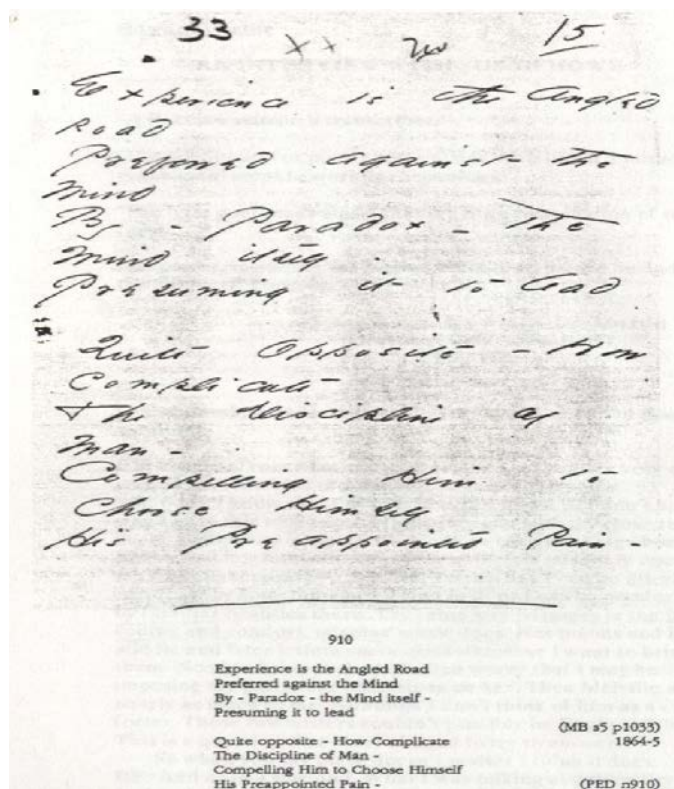 33 x x no 15
Experience is the Angled
Road
Preferred against - the
Mind
By - Paradox - the
Mind itself -
Presuming it to lead
Quite opposite - How
Complicate
The Discipline of
Man -
Compelling Him to
Choose Himself
His Preappointed Pain -
910
Experience is the Angled Road
Preferred against the Mind
By - Paradox - the Mind itself
Presuming it to lead
(MB s5 p1033)
Quite opposite - How Complicate 1864-5
The Discipline of Man -
Compelling Him to Choose Himself
His Preappointed Pain - (PED p910)